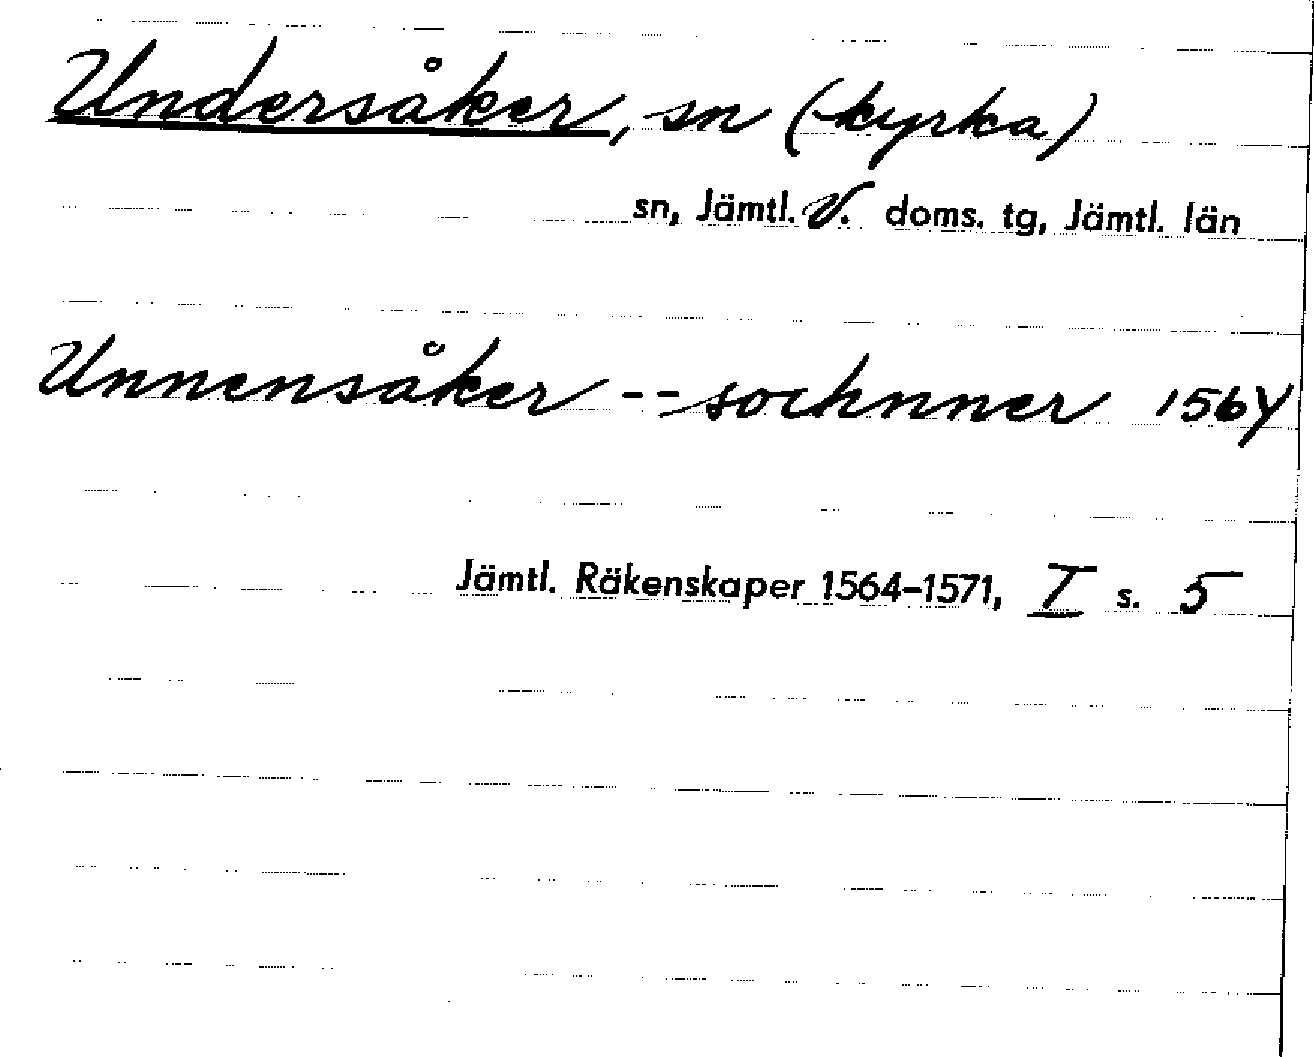 Undersåker, sn (-kyrka)
sn, Jämtl. V. doms. tg, Jämtl. län
Unnensåker -- sochnner 1564
Jämtl. Räkenskaper 1564-1571, I s. 5